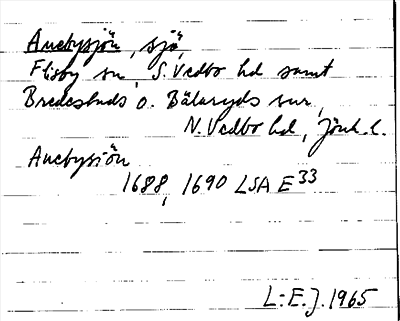 Anebysjön, sjö,
Flisby sn, S. Vedbo hd samt
Bredestads o. Bälaryds snr,
N. Vedbo hd, Jönk. l.
Anebysiön
1688, 1690 LSA E33
L:E.J. 1965